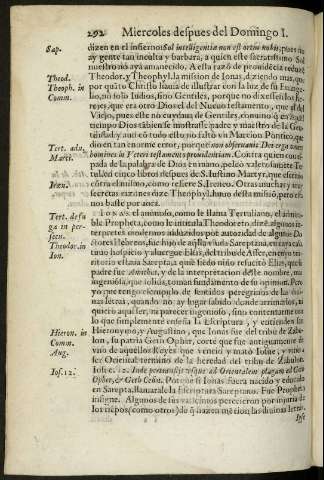 292 Miercoles despues del Domingo I.
Sap.
dizen en el infierno: Sol intelligentiæ non est ortus nobis, pues
ay gente tan inculta y barbara, a quien este sacratissimo Sol
nuestro no aya amanecido. A esta razõ de prouidẽcia reduze
Theod.
Theoph. in
Comm.
Theodor. y Theophyl. la mission de Ionas, diziendo mas, que
por quãto Christo hauia de illustrar con la luz de su Euange-
lio, no solo Iudios, sino Gentiles, porque no dixessen los He-
rejes, que era otro Dios el del Nueuo testamento, que el del
Viejo, pues este no cuydaua de Gentiles, conuino q̃ en aquel
tiempo Dios tābien se mostrasse padre y maestro de la Gen-
tilidad,
Tert. adu.
Marci.
dio en tan enorme error, porque non obseruauit Dei erga omnes
homines in Veteri testamento prouidentiam. Contra quien con la es-
pada de la palabra de Dios en mano, peleò valerosissimo Ter-
tul. en cinco libros despues de S. Iustino Martyr, que escriuio
Iren.
cõtra el mismo, como refiere S. Ireneo. Otras muchas y mas
secretas razones dize Theophylacto desta missiõ, pero esta
nos baste por aora.
Tert. de fu
ga in per-
secu.
Theodor. in
Ion.
IONAS el animoso, como le llama Tertuliano, el admira-
ble Propheta, como le intitula Theodoreto, dizẽ algunos in-
terpretes modernos inducidos por autoridad de algunos Do-
ctores Hebreos, fue hijo de aq̃lla viuda Sareptana, en cuya casa
tuuo hospicio y albergue Elias, del tribu de Asser, en cuyo ter-
ritorio estaua Sarepta, a que siẽdo niño resucitò Elias, que su
padre fue Amathas, y de la interpretacion deste nombre, mas
ingeniosa, que solida, toman fundamento de su opinion. Pero
yo que tengo exemplo de sentidos peregrinos de las diui-
nas letras, quando no ay lugar sabido, donde arrimarlos, si
quiera aqui ser, no parecer ingenioso, sino contentarme con
lo que simplemente enseña la Escriptura, y entienden san
Hieron. in
Comm.
Aug.
Hieronymo, y Augustino, que Ionas fue del tribu de Zabu-
lon, su patria Geth Opher, corte que fue antiguamente de
vno de aquellos Reyes que vencio y mato Iosue, y vino a
ser Oriental termino de la heredad del tribu de Zabulon.
Ios. 12.
Ios. c. 12. Inde pertransijt vsque ad Orientalem plagam ad Geth
Opher, & Geth Cesin. Porque si Ionas fuera nacido y educado
en Sarepta, llamarale la Escriptura Sareptano. Fue Propheta
insigne. Algunos de sus vaticinios perecieron por injuria de
los tiẽpos (como otros) de q̃ hazen mẽcion las diuinas letras.
Ipse